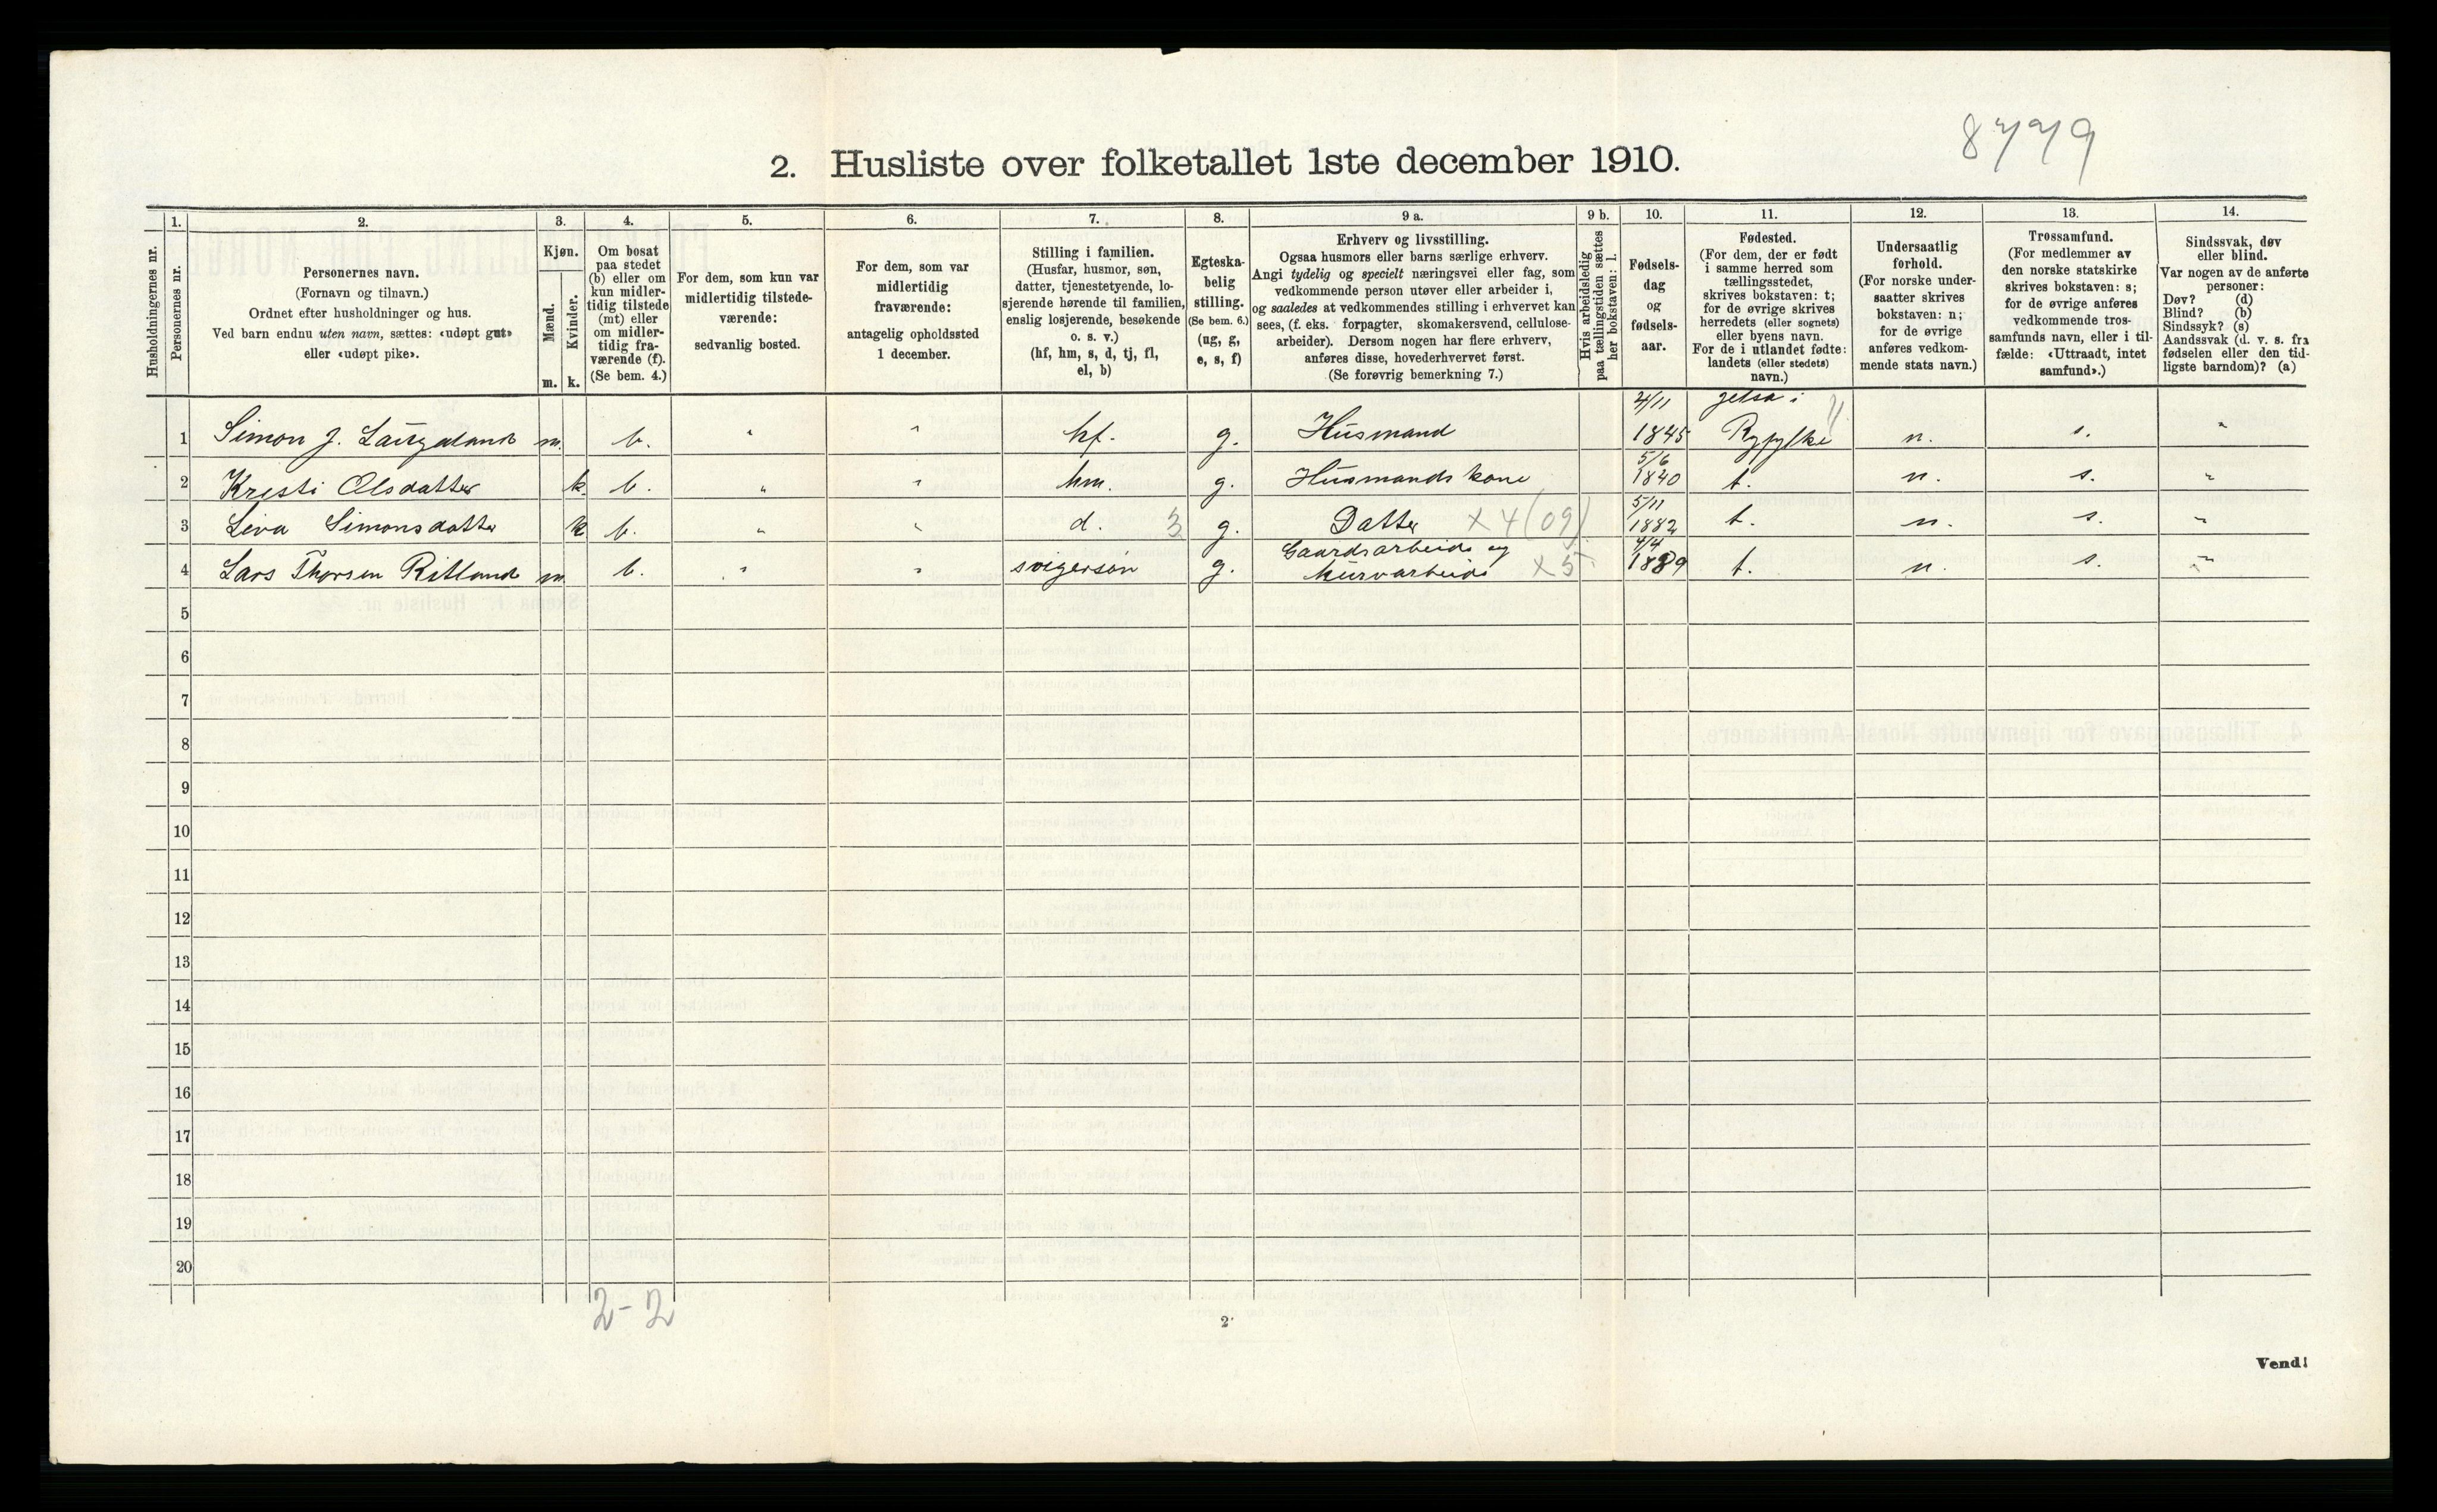 8779
2. Husliste over folketallet 1ste december 1910.
Husholdningernes nr.
1.
Personernes nr.
2.
Personernes navn.
(Fornavn og tilnavn.)
Ordnet efter husholdninger og hus.
Ved barn endnu uten navn, sættes: «udøpt gut»
eller «udøpt pike».
3.
Kjøn.
Mænd.
m.
Kvinder.
k.
4.
Om bosat
paa stedet
(b) eller om
kun midler-
tidig tilstede
(mt) eller
om midler-
tidig fra-
værende (f).
(Se bem. 4.)
5.
For dem, som kun var
midlertidig tilstede-
værende:
sedvanlig bosted.
6.
For dem, som var
midlertidig
fraværende:
antagelig opholdssted
1 december.
7.
Stilling i familien.
(Husfar, husmor, søn,
datter, tjenestetyende, lo-
sjerende hørende til familien,
enslig losjerende, besøkende
o. s. v.)
(hf, hm, s, d, tj, fl,
el, b)
8.
Egteska-
belig
stilling.
(Se bem. 6.)
(ug, g,
e, s, f)
9 a.
Erhverv og livsstilling.
Ogsaa husmors eller barns særlige erhverv.
Angi tydelig og specielt næringsvei eller fag, som
vedkommende person utøver eller arbeider i,
og saaledes at vedkommendes stilling i erhvervet kan
sees, (f. eks. forpagter, skomakersvend, cellulose-
arbeider). Dersom nogen har flere erhverv,
anføres disse, hovederhvervet først.
(Se forøvrig bemerkning 7.)
9 b.
Hvis arbeidsledig
paa tællingstiden sættes
her bokstaven: l.
10.
Fødsels-
dag
og
fødsels-
aar.
11.
Fødested.
(For dem, der er født
i samme herred som
tællingsstedet,
skrives bokstaven: t;
for de øvrige skrives
herredets (eller sognets)
eller byens navn.
For de i utlandet fødte:
landets (eller stedets)
navn.)
12.
Undersaatlig
forhold.
(For norske under-
saatter skrives
bokstaven: n;
for de øvrige
anføres vedkom-
mende stats navn.)
13.
Trossamfund.
(For medlemmer av
den norske statskirke
skrives bokstaven: s;
for de øvrige anføres
vedkommende tros-
samfunds navn, eller i til-
fælde: «Uttraadt, intet
samfund».)
14.
Sindssvak, døv
eller blind.
Var nogen av de anførte
personer:
Døv? (d)
Blind? (b)
Sindssyk? (s)
Aandssvak (d. v. s. fra
fødselen eller den tid-
ligste barndom)? (a)
1 Simon J. Laugaland m. b. " " hf. g. Husmand 4/11 1845 Jelsa i Ryfylke n. s. "
2 Kristi Olsdatter k. b. " " hm. g. Husmands kone 5/6 1840 t. n. s. "
3 Siva Simonsdatter k b. " " d. 3 g. Datter x 4 (09) 5/11 1882 t. n. s. "
4 Lars Thorsen Ritland m b. " " svigersøn g. Gaardsarbeide og murarbeide x 5 4/4 1889 t. n. s. "
5
6
7
8
9
10
11
12
13
14
15
16
17
18
19
20
2-2
2
Vend!